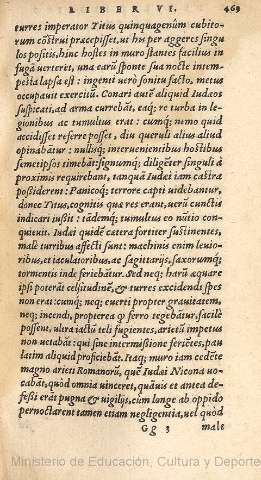 LIBER VI. 469
turres imperator Titus quinquagenûm cubito-
rum côstrui præcepisset, ut his per aggeres singu
los positis, hinc hostes in muro stantes facilius in
fugâ verteret, una earû sponte sua nocte intem-
pesta lapsa est: ingenti uerò sonitu facto, metus
occupauit exercitû. Conari autê aliquid Iudæos
suspicati, ad arma currebât, eaq; re turba in le-
gionibus ac tumultus erat: cumq; nemo quid
accidisset referre posset, diu queruli aliud aliud
opinabâtur: nullisq; interuenientibus hostibus
semetipsos timebât: signumq; diligêter singuli à
proximis requirebant, tanquâ Iudæi iam castra
possiderent: Panicoq; terrore capti uidebantur,
donec Titus, cognitis quæ res erant, uerû cunctis
indicari iussit: tâdemq; tumultus eo nûtio con-
quieuit. Iudæi quidê cætera fortiter sustinentes,
malè turribus affecti sunt: machinis enim leuio-
ribus, et iaculatoribus, ac sagittarijs, saxorumq;
tormentis inde feriebâtur. Sed neq; harû æquare
ipsi poterât celsitudinê, & turres excidendi spes
non erat: cumq; neq; euerti propter grauitatem,
neq; incendi, propterea qp ferro tegebâtur, facilè
possent, ultra iactû teli fugientes, arietû impetus
non uetabât: qui sine intermissione feriêtes, pau
latim aliquid proficiebât. Itaq; muro iam cedête
magno arieti Romanorû, quê Iudæi Nicona uo-
cabât, quòd omnia uinceret, quâuis et antea de-
fessi erât pugna & uigilijs, cùm longe ab oppido
pernoctarent tamen etiam negligentia, uel quòd
Gg 3 male
Ministerio de Educación, Cultura y Deporte